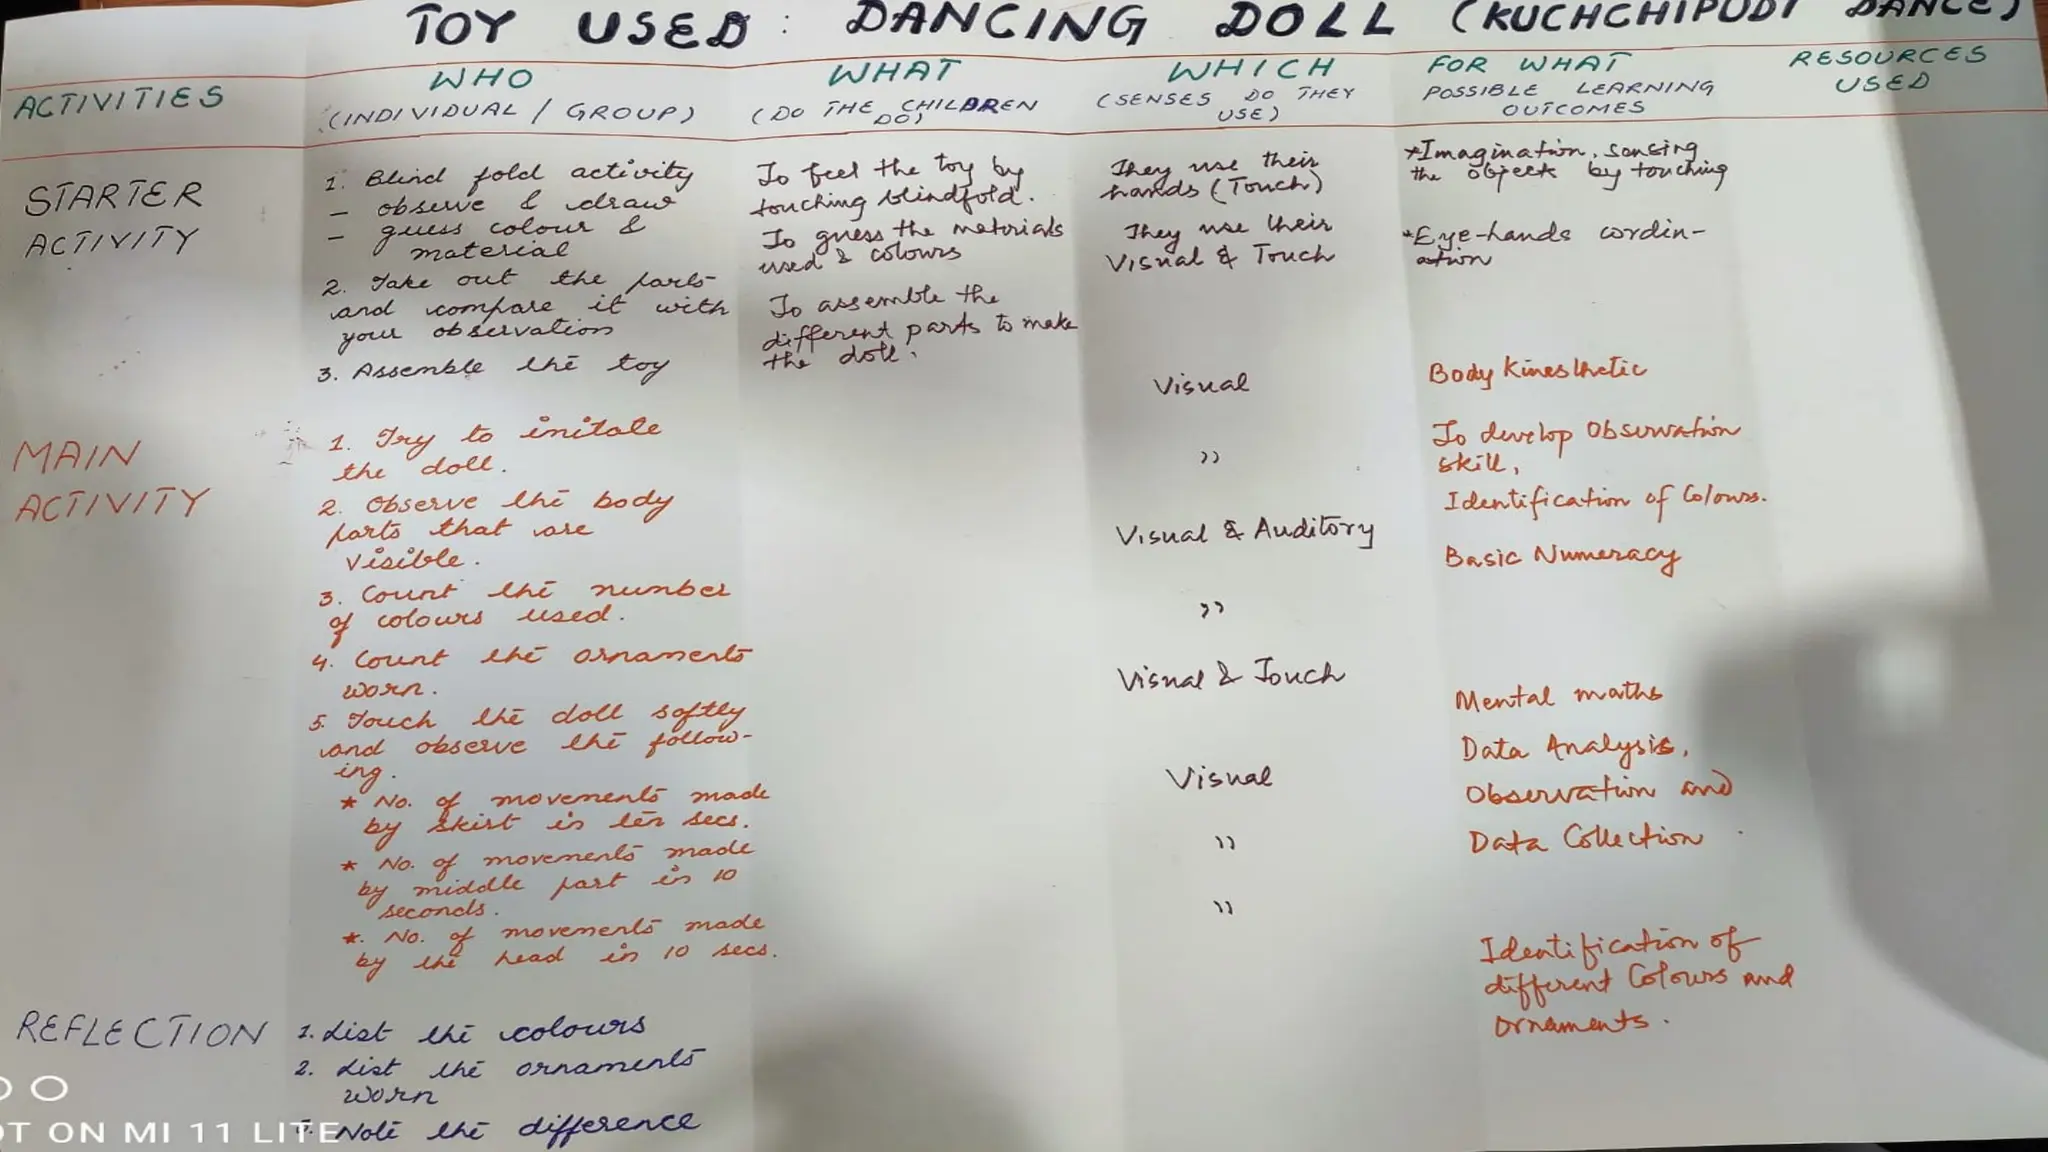 TOY USED: DANCING DOLL (KUCHCHIPUDI DANCE)
ACTIVITIES
WHO
(INDIVIDUAL / GROUP)
WHAT
(DO THE CHILDREN
DO)
WHICH
(SENSES DO THEY
USE)
FOR WHAT
POSSIBLE LEARNING
OUTCOMES
RESOURCES
USED
STARTER
ACTIVITY
1. Blind fold activity
- observe & draw
- guess colour &
material
2. Take out the parts
and compare it with
your observation
3. Assemble the toy
To feel the toy by
touching blindfold.
To guess the materials
used & colours
To assemble the
different parts to make
the doll.
They use their
hands (Touch)
They use their
Visual & Touch
Visual
*Imagination, sensing
the objects by touching
*Eye-hands cordin-
ation
Body Kinesthetic
MAIN
ACTIVITY
1. Try to imitate
the doll.
2. Observe the body
parts that are
visible.
3. Count the number
of colours used.
4. Count the ornaments
worn.
5. Touch the doll softly
and observe the follow-
ing.
* No. of movements made
by skirt in ten secs.
* No. of movements made
by middle part in 10
seconds.
*. No. of movements made
by the head in 10 secs.
"
Visual & Auditory
"
Visual & Touch
Visual
"
"
To develop Observation
skill,
Identification of Colours.
Basic Numeracy
Mental maths
Data Analysis,
Observation and
Data Collection
Identification of
different Colours and
ornaments.
REFLECTION
1. List the colours
2. List the ornaments
worn
Note the difference
OT ON MI 11 LITE